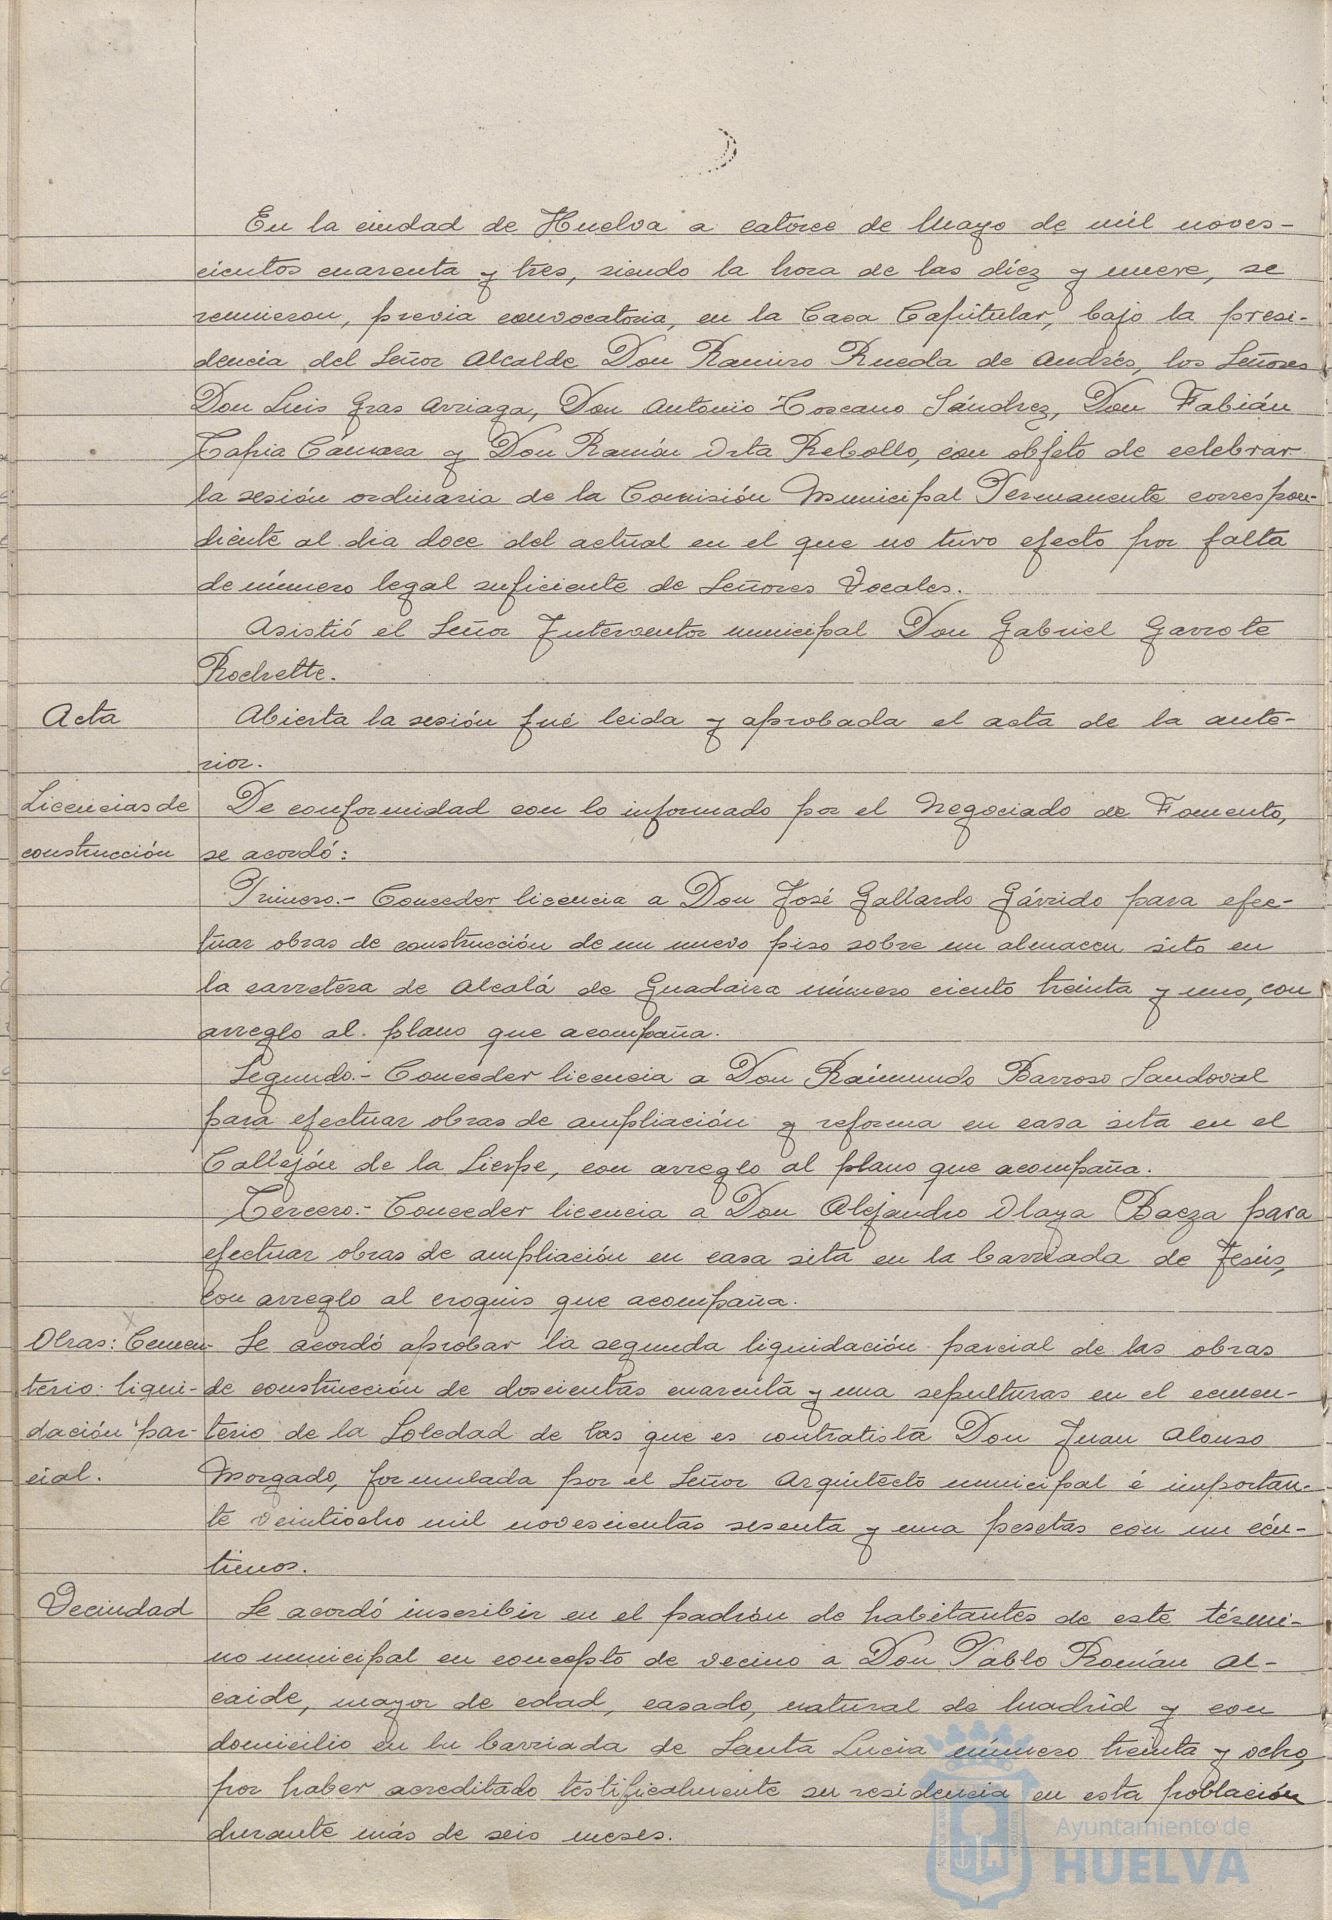 En la ciudad de Huelva a catorce de Mayo de mil noves-
cientos cuarenta y tres, siendo la hora de las diez y nueve, se
reunieron, previa convocatoria, en la Casa Capitular, bajo la presi-
dencia del Señor Alcalde Don Ramiro Rueda de Andrés, los Señores
Don Luis Gras Arriaga, Don Antonio Toscano Sánchez, Don Fabián
Tapia Cámara y Don Ramón Orta Rebollo, con objeto de celebrar
la sesión ordinaria de la Comisión Municipal Permanente correspon-
diente al dia doce del actual en el que no tuvo efecto por falta
de número legal suficiente de Señores Vocales.
Asistió el Señor Interventor municipal Don Gabriel Garrote
Rochette.
Acta
Abierta la sesión fué leida y aprobada el acta de la ante-
rior.
Licencias de
construcción
De conformidad con lo informado por el Negociado de Fomento,
se acordó:
Primero.- Conceder licencia a Don José Gallardo Gárrido para efec-
tuar obras de construcción de un nuevo piso sobre un almacen sito en
la carretera de Alcalá de Guadaira número ciento treinta y uno, con
arreglo al plano que acompaña.
Segundo.- Conceder licencia a Don Raimundo Barroso Sandoval
para efectuar obras de ampliación y reforma en casa sita en el
Callejón de la Sierpe, con arreglo al plano que acompaña.
Tercero.- Conceder licencia a Don Alejandro Olaya Baeza para
efectuar obras de ampliación en casa sita en la barriada de Jesús,
con arreglo al croquis que acompaña.
Obras: Cemen-
terio: liqui-
dación par-
cial.
Se acordó aprobar la segunda liquidación parcial de las obras
de construcción de doscientas cuarenta y una sepulturas en el cemen-
terio de la Soledad de las que es contratista Don Juan Alonso
Morgado, formulada por el Señor Arquitecto municipal é importan-
te veintiocho mil novescientas sesenta y una pesetas con un cén-
timos.
Vecindad
Se acordó inscribir en el padrón de habitantes de este térmi-
no municipal en concepto de vecino a Don Pablo Román Al-
caide, mayor de edad, casado, natural de Madrid y con
domicilio en la barriada de Santa Lucia número treinta y ocho,
por haber acreditado testificalmente su residencia en esta población
durante más de seis meses.
Ayuntamiento de
HUELVA